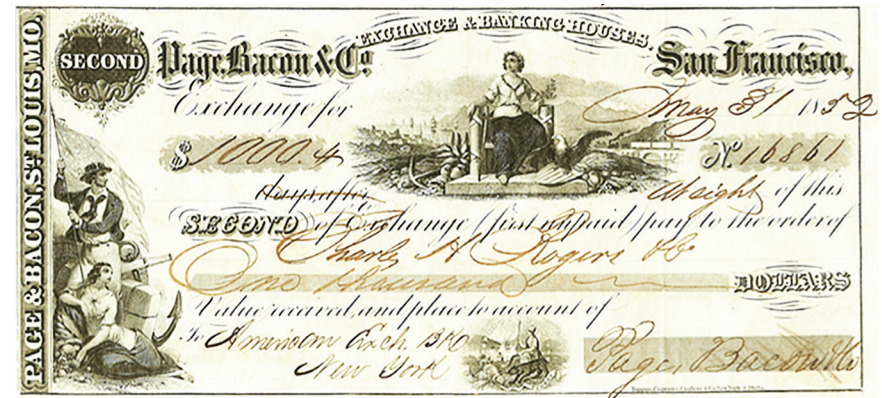 PAGE & BACON, ST. LOUIS, MO.
SECOND
Page, Bacon & Co.
EXCHANGE & BANKING HOUSES.
San Francisco,
Exchange for
May 31 1852
$ 1000.
No. 16861
At sight of this
SECOND of Exchange (first unpaid) pay to the order of
Charles H Rogers
One thousand DOLLARS
Value received, and place to account of
To American Exch. Bk
New York
Page, Bacon & Co